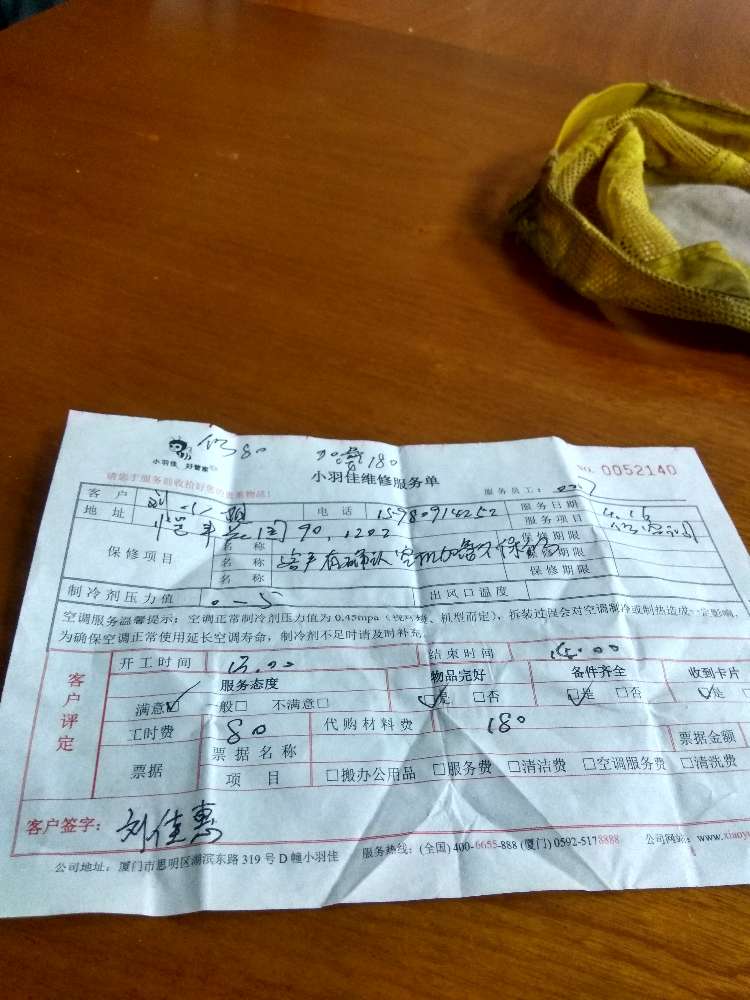 小羽佳 好管家
修80 加雪180
小羽佳维修服务单
NO. 0052140
请您于服务前收拾好您的贵重物品!
服务员工:
客户 刘小姐 电话 15980914252 服务日期
地址 90,1202 服务项目 修空调
保修项目 名称 保修期限
名称 客户有确认 保修期限
名称 保修期限
制冷剂压力值 0-5 出风口温度
空调服务温馨提示:空调正常制冷剂压力值为0.45mpa(视环境、机型而定),拆装过程会对空调制冷或制热造成一定影响,
为确保空调正常使用延长空调寿命,制冷剂不足时请及时补充。
客户评定
开工时间 13.00 结束时间
服务态度 物品完好 备件齐全 收到卡片
满意□ 一般□ 不满意□ □是 □否 □是 □否 □是
工时费 80 代购材料费 180
票据 票据名称 票据金额
项目 □搬办公用品 □服务费 □清洁费 □空调服务费 □清洗费
客户签字: 刘佳惠
公司地址:厦门市思明区湖滨东路319号D幢小羽佳 服务热线:(全国)400-6655-888 (厦门)0592-5178888 公司网站:www.xiaoy